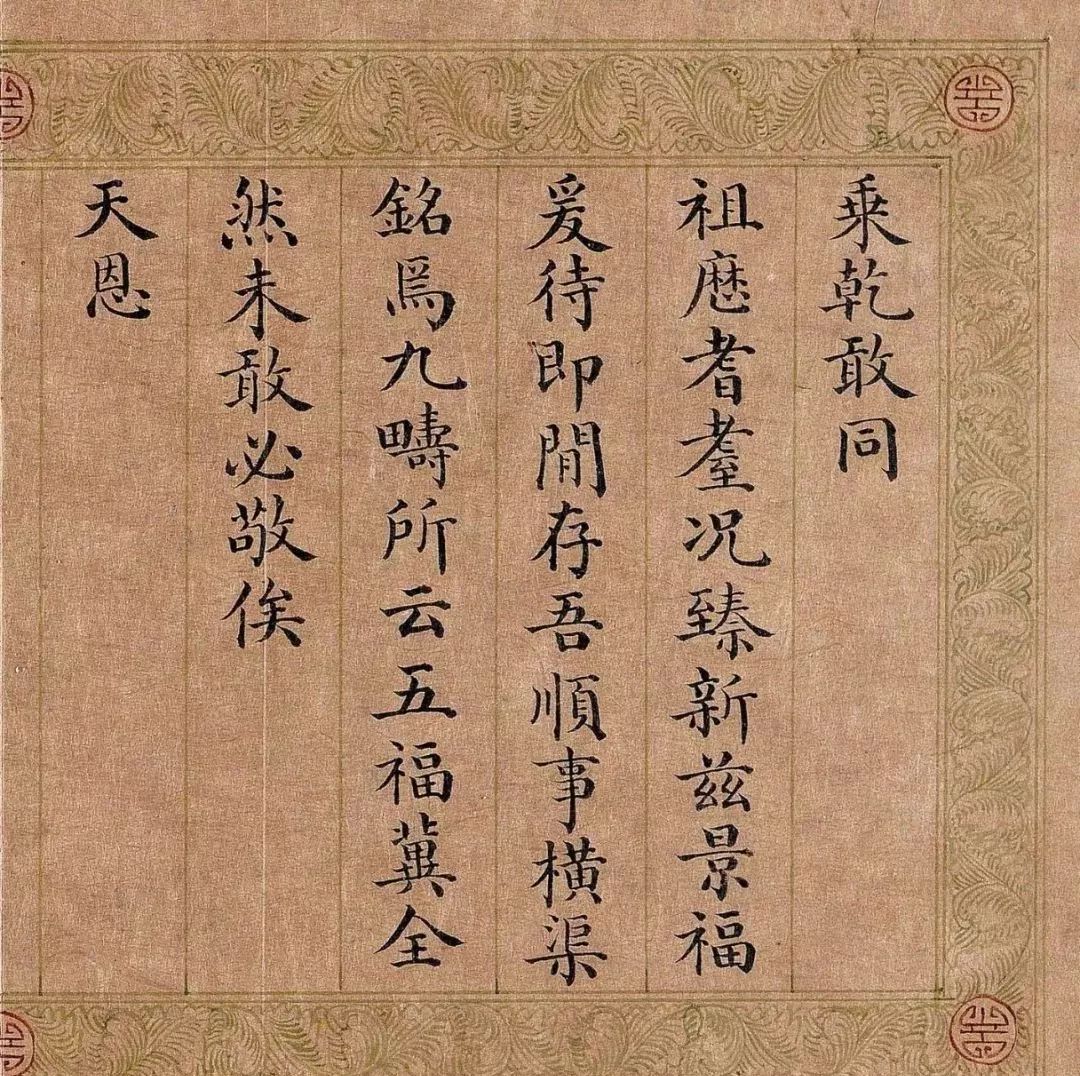 乗乾敢同
祖歴耆耋况臻新兹景福
爰待即閒存吾順事横渠
銘爲九疇所云五福冀全
然未敢必敬俟
天恩